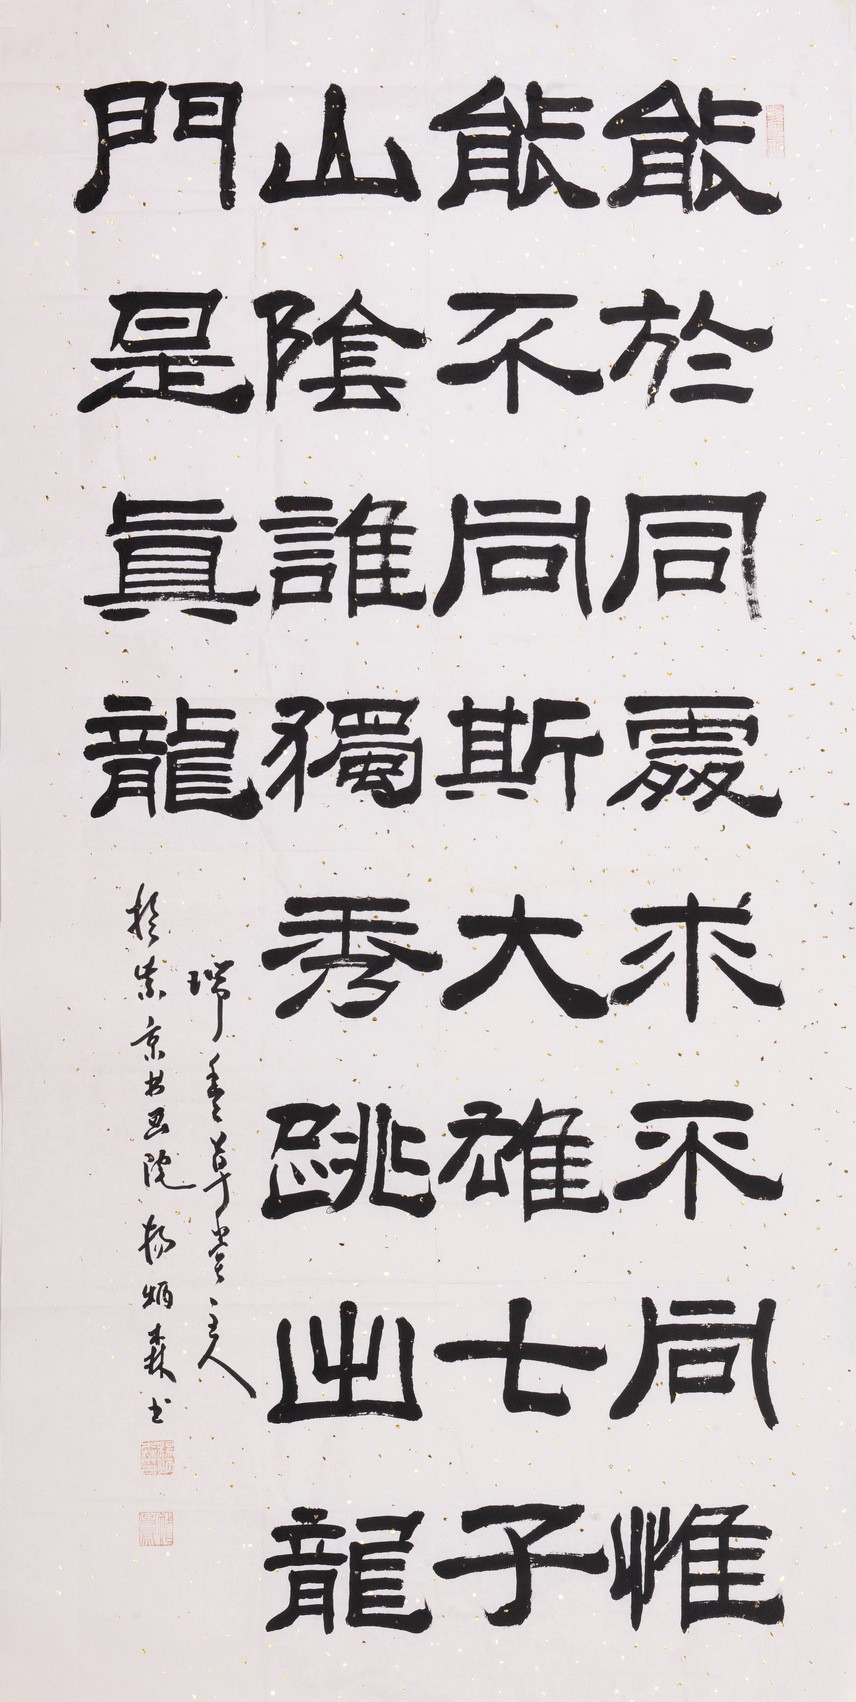 能於同處求不同惟
能不同斯大雄七子
山陰誰獨秀跳出龍
門是真龍
瑞雪草堂主人
於紫京书画院杨炳森书